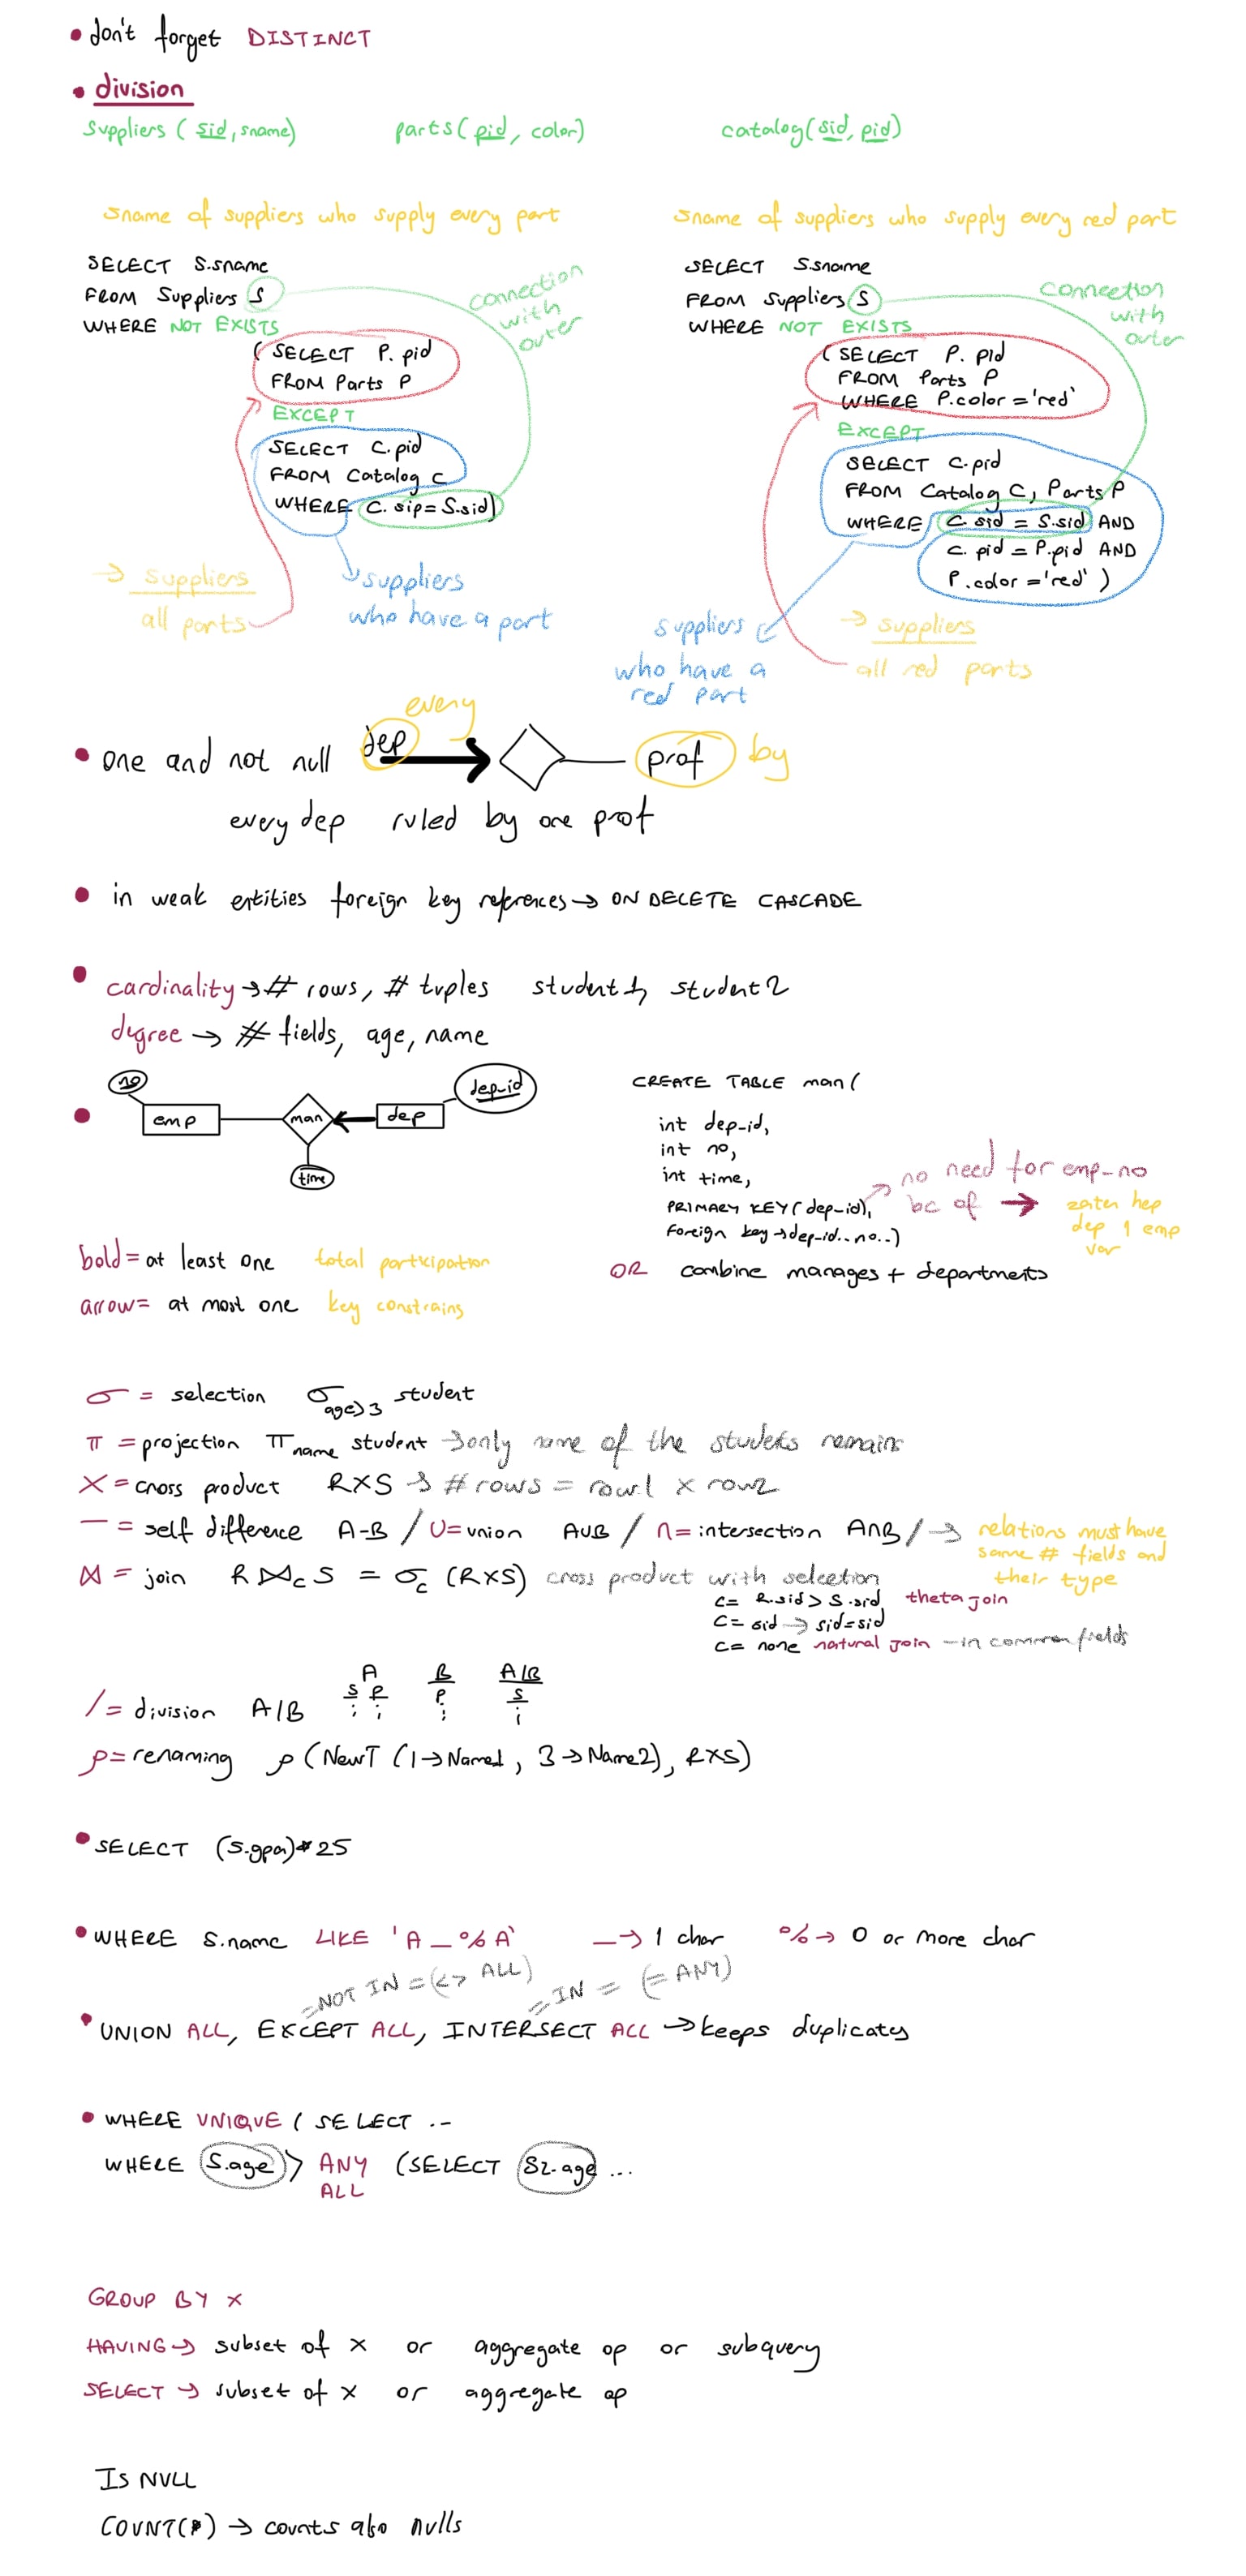 • don't forget DISTINCT
• division
Suppliers ( sid, sname)
parts( pid, color)
catalog( sid, pid)
sname of suppliers who supply every part
SELECT S.sname
FROM Suppliers S
WHERE NOT EXISTS
( SELECT P. pid
FROM Parts P
EXCEPT
SELECT C.pid
FROM Catalog C
WHERE C. sip = S.sid)
connection
with
outer
→ suppliers
all parts
suppliers
who have a part
sname of suppliers who supply every red part
SELECT S.sname
FROM Suppliers S
WHERE NOT EXISTS
( SELECT P. pid
FROM Parts P
WHERE P.color = 'red'
EXCEPT
SELECT C.pid
FROM Catalog C, Parts P
WHERE C.sid = S.sid AND
C. pid = P.pid AND
P.color = 'red' )
connection
with
outer
suppliers
who have a
red part
→ suppliers
all red parts
every
• one and not null dep prof by
every dep ruled by one prof
• in weak entities foreign key references → ON DELETE CASCADE
• cardinality → # rows, # tuples student1, student2
degree → # fields, age, name
no
dep-id
• emp man dep
time
CREATE TABLE man (
int dep-id,
int no,
int time,
PRIMARY KEY( dep-id),
Foreign key → dep-id.. no..)
no need for emp-no
bc of →
zaten hep
dep 1 emp
var
OR combine manages + departments
bold = at least one total participation
arrow = at most one key constrains
σ = selection σ age>3 student
π = projection π name student → only name of the students remains
X = cross product RXS → # rows = row1 x row2
— = self difference A-B / U = union AUB / ∩ = intersection A∩B / → relations must have
same # fields and
their type
⋈ = join R ⋈c S = σc (RXS) cross product with selection
c = R.sid > S.sid theta join
c = sid → sid=sid
c = none natural join — in common fields
/ = division A/B
A B A/B
s p p s
ρ = renaming ρ (NewT (1→Name1, 3→Name2), RXS)
• SELECT (S.gpa)*25
• WHERE S.name LIKE 'A _ % A' _ → 1 char % → 0 or more char
= NOT IN = (<> ALL) = IN = (= ANY)
• UNION ALL, EXCEPT ALL, INTERSECT ALL → keeps duplicates
• WHERE UNIQUE ( SELECT ..
WHERE S.age > ANY (SELECT S2.age ...
ALL
GROUP BY x
HAVING → subset of x or aggregate op or subquery
SELECT → subset of x or aggregate op
IS NULL
COUNT(*) → counts also nulls